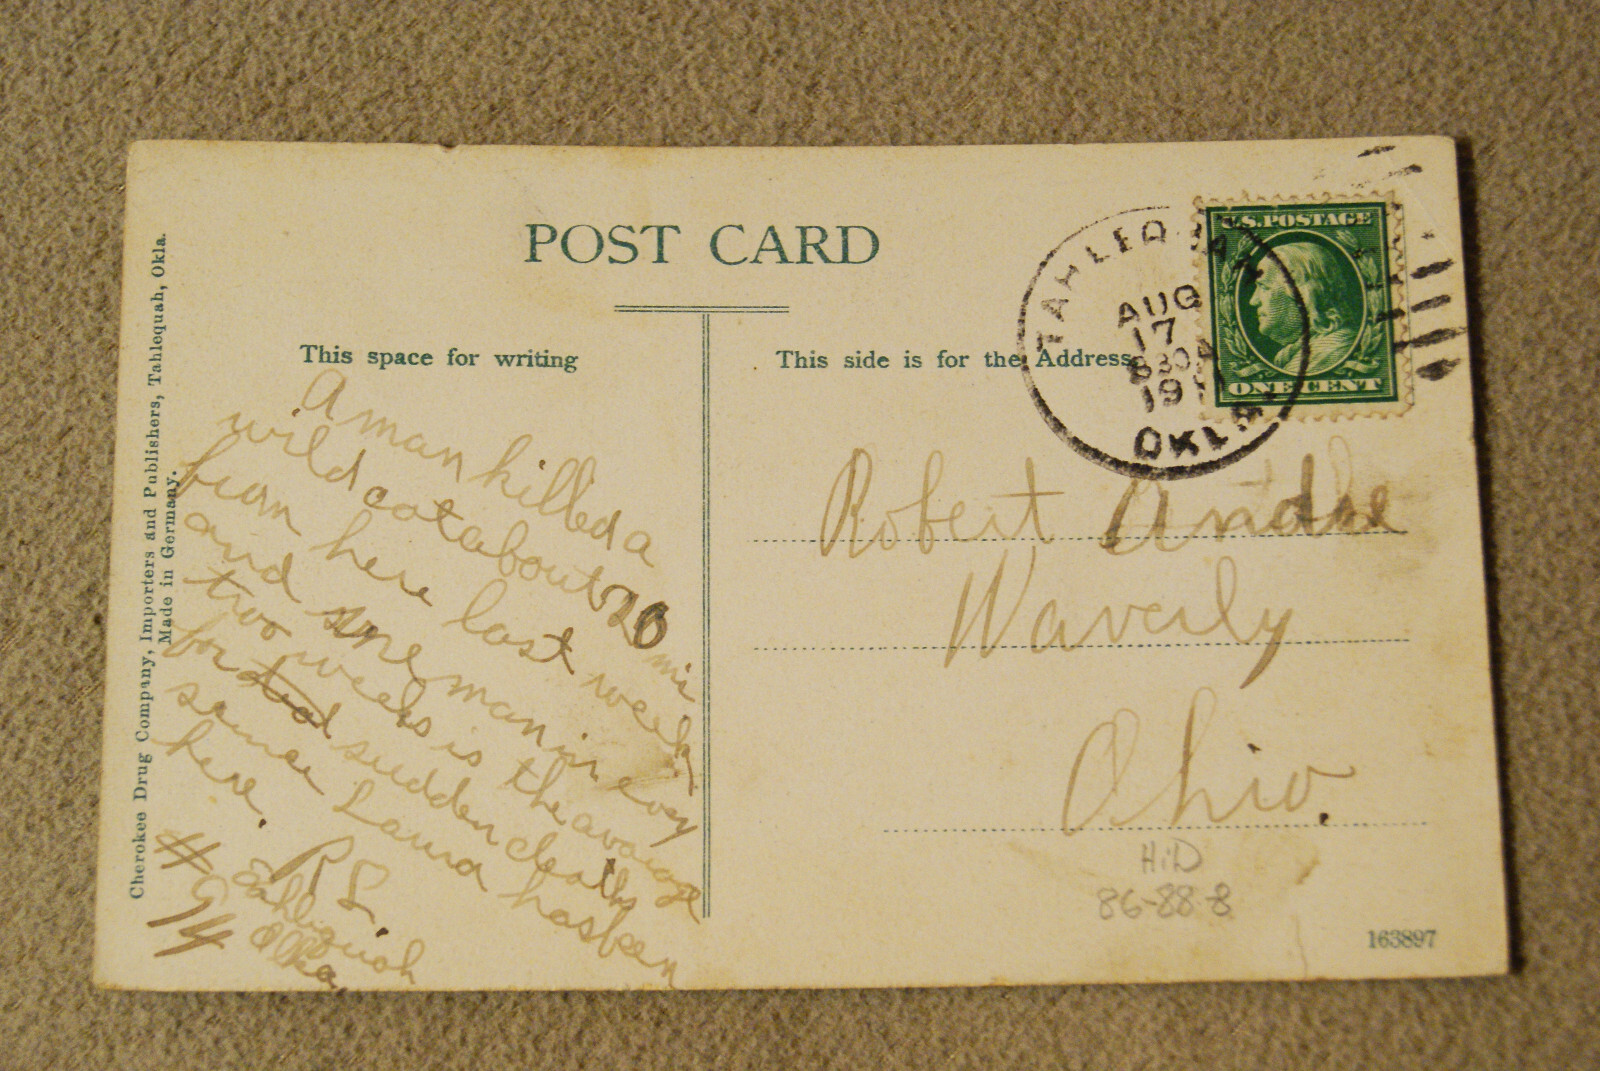 POST CARD
This space for writing
This side is for the Address
Cherokee Drug Company, Importers and Publishers, Tahlequah, Okla.
Made in Germany.
A man killed a
wild cat about 20 mi
from here last week
and one man in every
two weeks is the avarage
for sudden deaths
since Laura has been
here.
R S.
Okla.
# 94
TAHLEQUAH
AUG
17
830A
191
OKLA.
U.S. POSTAGE
ONE CENT
Robert
Waverly
Ohio.
HiD
86-88-8
163897